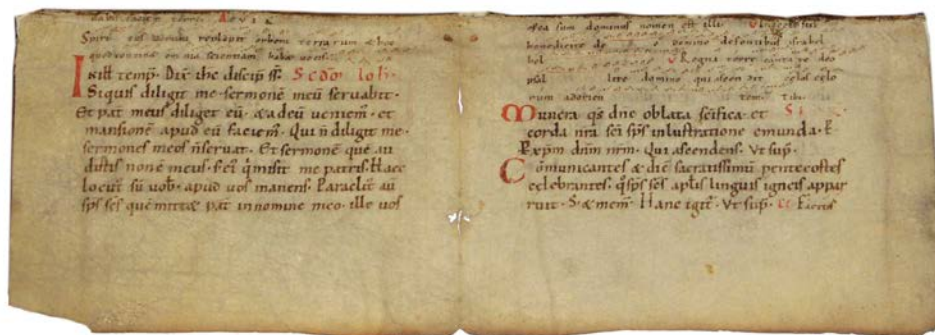 A E V I A
Spirit' domini replevit orbem terrarum & hoc
quod continet omnia scientiam habet vocis
Ĭn ill temp̄. Dix̄ ihc discip̄ s̄s. Scdm̄ Ioh̄.
Siquis diligit me sermonē meū servabit.
Et pat̄ meus diliget eū. & adeū veniem̄. et
mansionē apud eū faciem̄. Qui n̄ diligit me.
sermones meos n̄servat. Et sermonē quē au
distis non ē meus. s; ei' q̄misit me patris. Haec
locut' sū vob̄. apud vos manens. Paraclit' aū
sp̄s sc̄s quē mitt& pat̄ in nomine meo. ille vos
dominus nomen est illi
benedicite de domino defontibus israhel
Regna terre cantate deo
psallite domino qui ascendit celos celo
rum adorien
Munera q̄s dn̄e oblata sc̄ifica. et
corda nr̄a sc̄i sp̄s inlustratione emunda. P̄.
P̄ xp̄m dnm̄ nrm̄. Qui ascendens. Ut sup̄.
Cōmunicantes & diē sacratissimū pentecostes
celebrantes. q̄ sp̄s sc̄s ap̄lis linguis igneis appar
ruit. S. & mem̄. Hanc igit̄. Ut sup̄. cō Factus